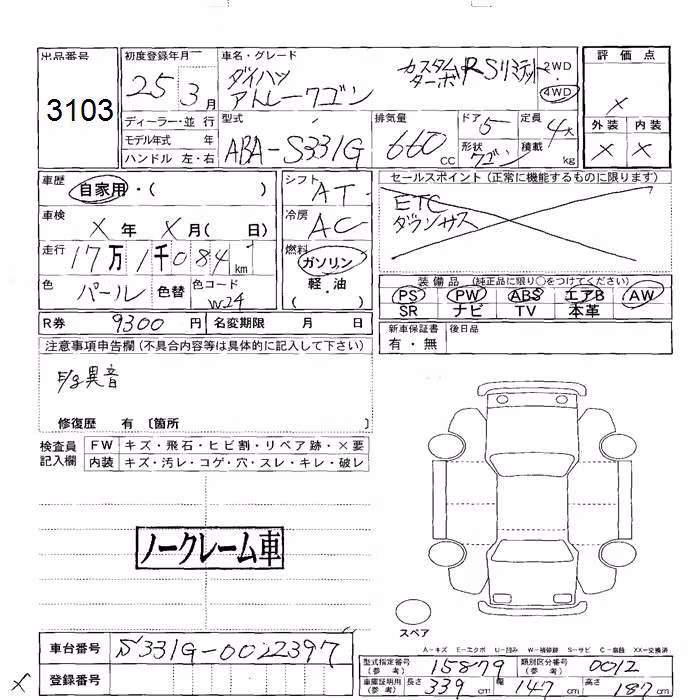 出品番号
3103
初度登録年月
25 3月
車名・グレード
ダイハツ カスタムターボRSリミテット
アトレーワゴン
2WD
4WD
評価点
×
外装 内装
× ×
ディーラー・並行
モデル年式 年
ハンドル 左・右
型式
ABA-S331G
排気量
660cc
ドア 5
形状 ワゴン
定員 4人
積載 kg
車歴
自家用・( )
シフト
AT
車検
×年 ×月( 日)
冷房
AC
走行
17万1千084km
燃料
ガソリン
軽・油
( )
色
パール
色替
色コード
W24
R券 9300円
名変期限 月 日
セールスポイント(正常に機能するものに限ります)
ETC
ダウンサス
装備品(純正品に限り○をつけてください)
PS PW ABS エアB AW
SR ナビ TV 本革
新車保証書
有・無
後日品
注意事項申告欄(不具合内容等は具体的に記入して下さい)
異音
修復歴 有 〔箇所 〕
検査員
記入欄
FW キズ・飛石・ヒビ割・リペア跡・×要
内装 キズ・汚レ・コゲ・穴・スレ・キレ・破レ
ノークレーム車
スペア
A-キズ E-エクボ U-凹み W-補修跡 S-サビ C-腐蝕 XX-交換済
車台番号 S331G-0022397
登録番号
×
型式指定番号
(参考)
15879
類別区分番号
(参考)
0012
車庫証明用
(参考)
長さ 339cm 幅 147cm 高さ 187cm